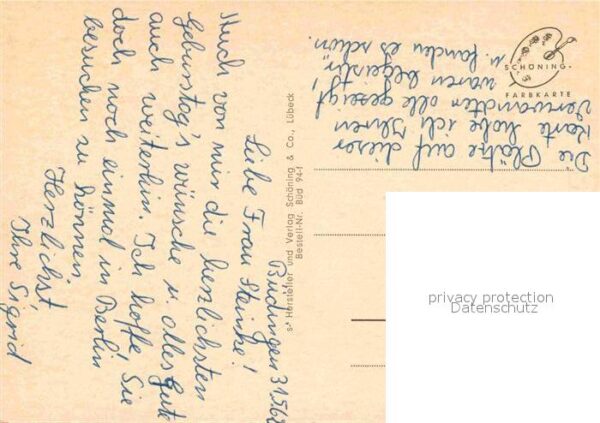 Büdingen 31.5.62
Liebe Frau Steinke!
Auch von mir die herzlichsten
Geburtstag's wünsche u. alles Gute
auch weiterhin. Ich hoffe Sie
doch noch einmal in Berlin
besuchen zu können
Herzlichst
Ihre Sigrid
Die Plätze auf dieser
Karte habe ich Ihren
Verwandten alle gezeigt
waren begeistert!
u. fanden es schön.
SCHÖNING-
FARBKARTE
s* Hersteller und Verlag Schöning & Co., Lübeck
Bestell-Nr. Büd 94-f
privacy protection
Datenschutz